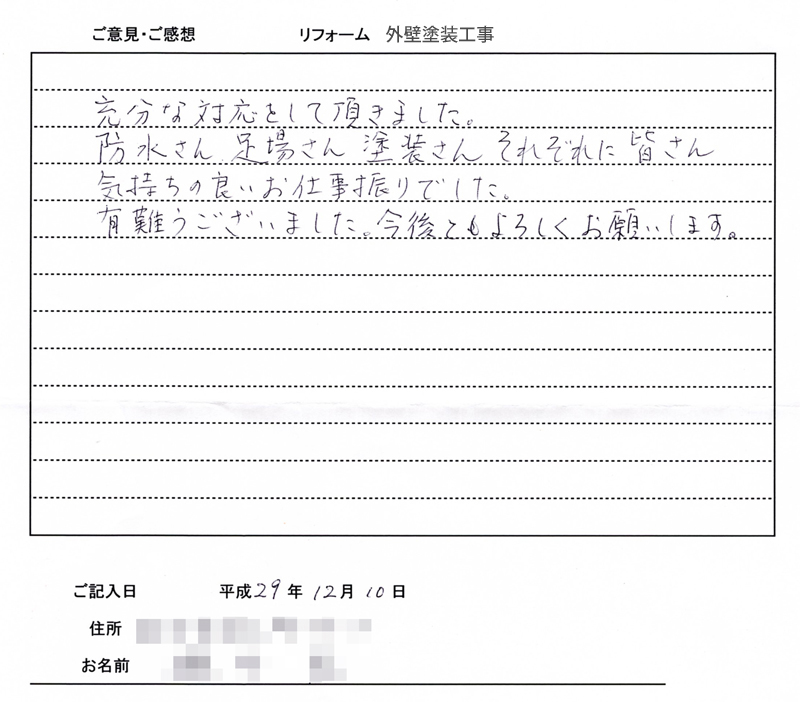 ご意見・ご感想 リフォーム 外壁塗装工事
充分な対応をして頂きました。
防水さん 足場さん 塗装さん それぞれに 皆さん
気持ちの良いお仕事振りでした。
有難うございました。今後ともよろしくお願いします。
ご記入日 平成29年12月10日
住所
お名前